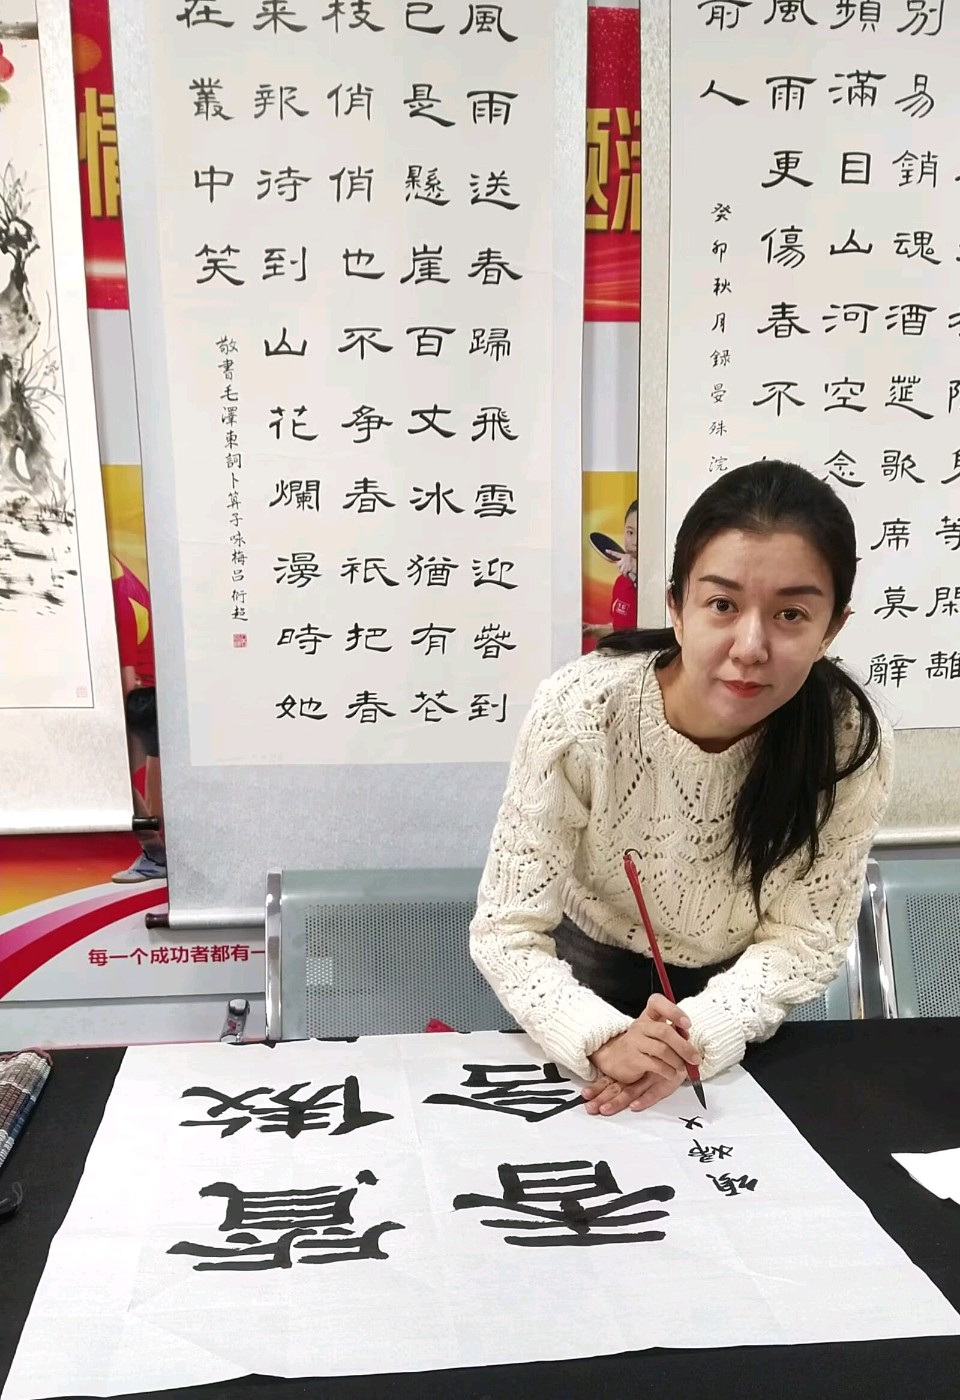 情
题
風雨送春歸飛雪迎春到
已是懸崖百丈冰猶有花
枝俏俏也不争春衹把春
来報待到山花爛漫時她
在叢中笑
敬書毛澤東詞卜算子咏梅吕衍超
等閑離
別易銷魂酒筵歌席莫辭
頻滿目山河空念
風雨更傷春不
前人
癸卯秋月録晏殊浣
每一个成功者都有一
質傲
香含